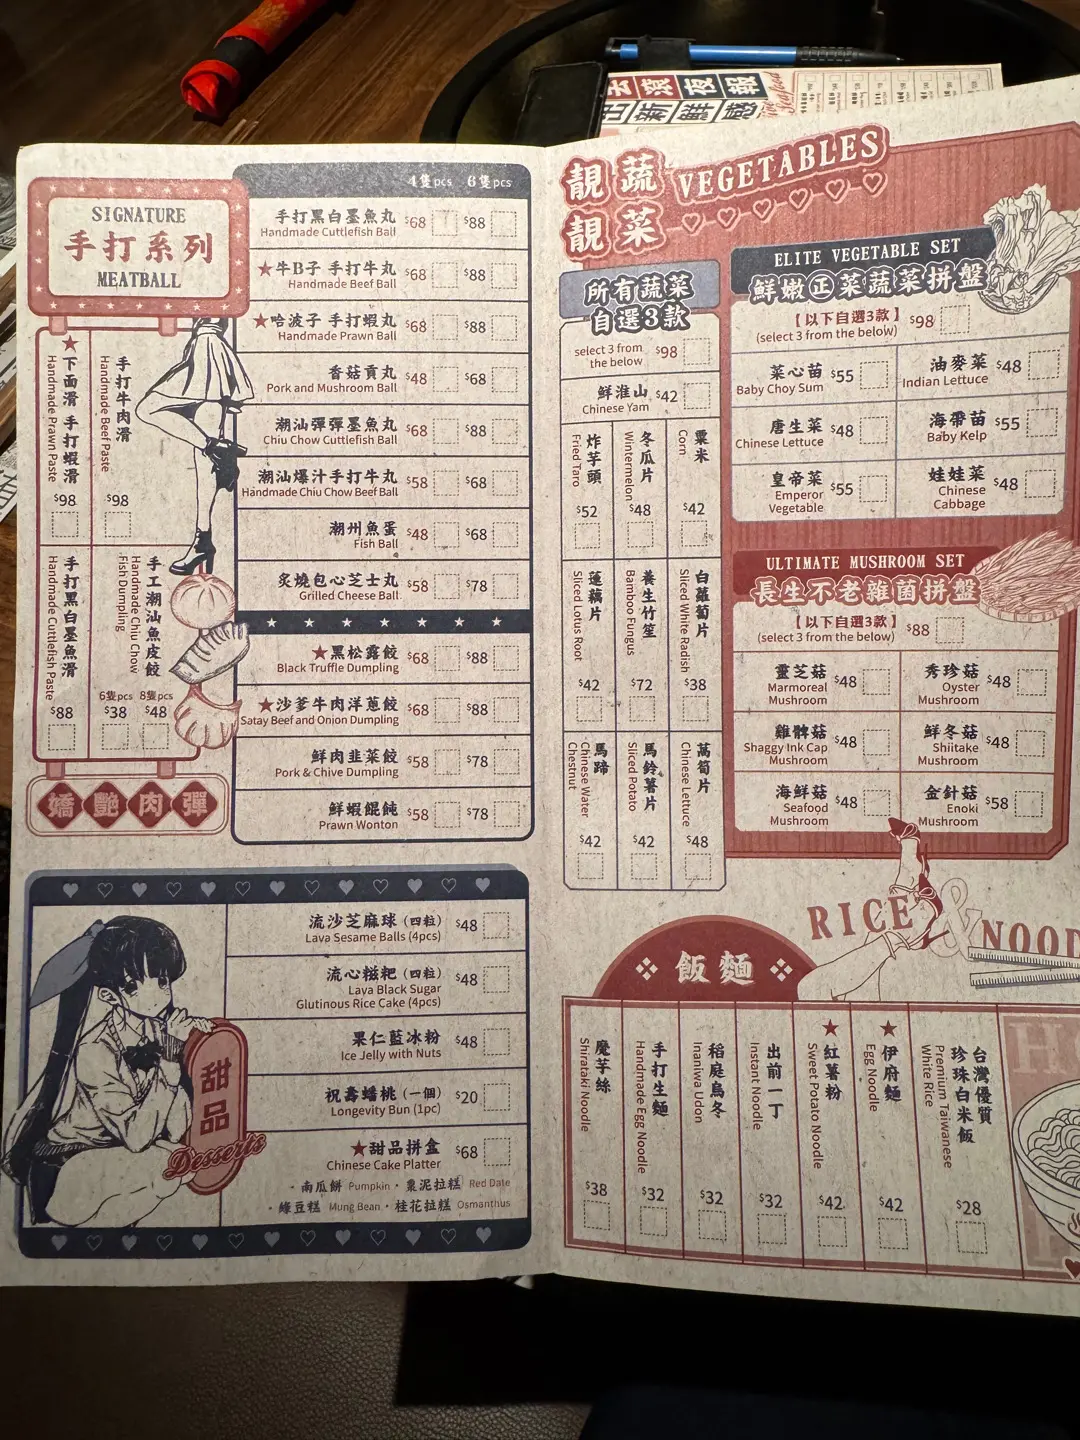 SIGNATURE
手打系列
MEATBALL
4隻pcs 6隻pcs
手打黑白墨魚丸 $68 $88
Handmade Cuttlefish Ball
★牛B子 手打牛丸 $68 $88
Handmade Beef Ball
★哈波子 手打蝦丸 $68 $88
Handmade Prawn Ball
香菇貢丸 $48 $68
Pork and Mushroom Ball
潮汕彈彈墨魚丸 $68 $88
Chiu Chow Cuttlefish Ball
潮汕爆汁手打牛丸 $58 $68
Handmade Chiu Chow Beef Ball
潮州魚蛋 $48 $68
Fish Ball
炙燒包心芝士丸 $58 $78
Grilled Cheese Ball
★黑松露餃 $68 $88
Black Truffle Dumpling
★沙爹牛肉洋蔥餃 $68 $88
Satay Beef and Onion Dumpling
鮮肉韭菜餃 $58 $78
Pork & Chive Dumpling
鮮蝦餛飩 $58 $78
Prawn Wonton
★下面滑 手打蝦滑
Handmade Prawn Paste
$98
手打牛肉滑
Handmade Beef Paste
$98
手打黑白墨魚滑
Handmade Cuttlefish Paste
$88
手工潮汕魚皮餃
Handmade Chiu Chow
Fish Dumpling
6隻pcs 8隻pcs
$38 $48
嬌艷肉彈
流沙芝麻球（四粒） $48
Lava Sesame Balls (4pcs)
流心糍粑（四粒） $48
Lava Black Sugar
Glutinous Rice Cake (4pcs)
果仁藍冰粉 $48
Ice Jelly with Nuts
祝壽蟠桃（一個） $20
Longevity Bun (1pc)
★甜品拼盒 $68
Chinese Cake Platter
・南瓜餅 Pumpkin・棗泥拉糕 Red Date
・綠豆糕 Mung Bean・桂花拉糕 Osmanthus
甜品
Desserts
靚蔬
靚菜
VEGETABLES
所有蔬菜
自選3款
select 3 from
the below $98
鮮淮山 $42
Chinese Yam
炸芋頭
Fried Taro
$52
冬瓜片
Wintermelon
$48
粟米
Corn
$42
蓮藕片
Sliced Lotus Root
$42
養生竹笙
Bamboo Fungus
$72
白蘿蔔片
Sliced White Radish
$38
馬蹄
Chinese Water
Chestnut
$42
馬鈴薯片
Sliced Potato
$42
萵筍片
Chinese Lettuce
$48
ELITE VEGETABLE SET
鮮嫩正菜蔬菜拼盤
【以下自選3款】 $98
(select 3 from the below)
菜心苗 $55
Baby Choy Sum
油麥菜 $48
Indian Lettuce
唐生菜 $48
Chinese Lettuce
海帶苗 $55
Baby Kelp
皇帝菜 $55
Emperor
Vegetable
娃娃菜 $48
Chinese
Cabbage
ULTIMATE MUSHROOM SET
長生不老雜菌拼盤
【以下自選3款】 $88
(select 3 from the below)
靈芝菇 $48
Marmoreal
Mushroom
秀珍菇 $48
Oyster
Mushroom
雞髀菇 $48
Shaggy Ink Cap
Mushroom
鮮冬菇 $48
Shiitake
Mushroom
海鮮菇 $48
Seafood
Mushroom
金針菇 $58
Enoki
Mushroom
RICE & NOOD
飯麵
魔芋絲
Shirataki Noodle
$38
手打生麵
Handmade Egg Noodle
$32
稻庭烏冬
Inaniwa Udon
$32
出前一丁
Instant Noodle
$32
★紅薯粉
Sweet Potato Noodle
$42
★伊府麵
Egg Noodle
$42
台灣優質
珍珠白米飯
Premium Taiwanese
White Rice
$28